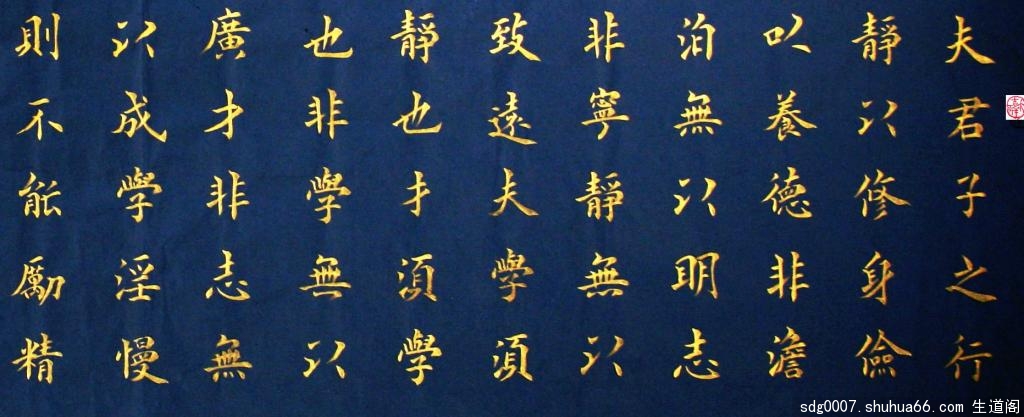 夫君子之行
靜以修身儉
以養德非澹
泊無以明志
非寧靜無以
致遠夫學須
靜也才須學
也非學無以
廣才非志無
以成學淫慢
則不能勵精
sdg0007.shuhua66.com 生道阁